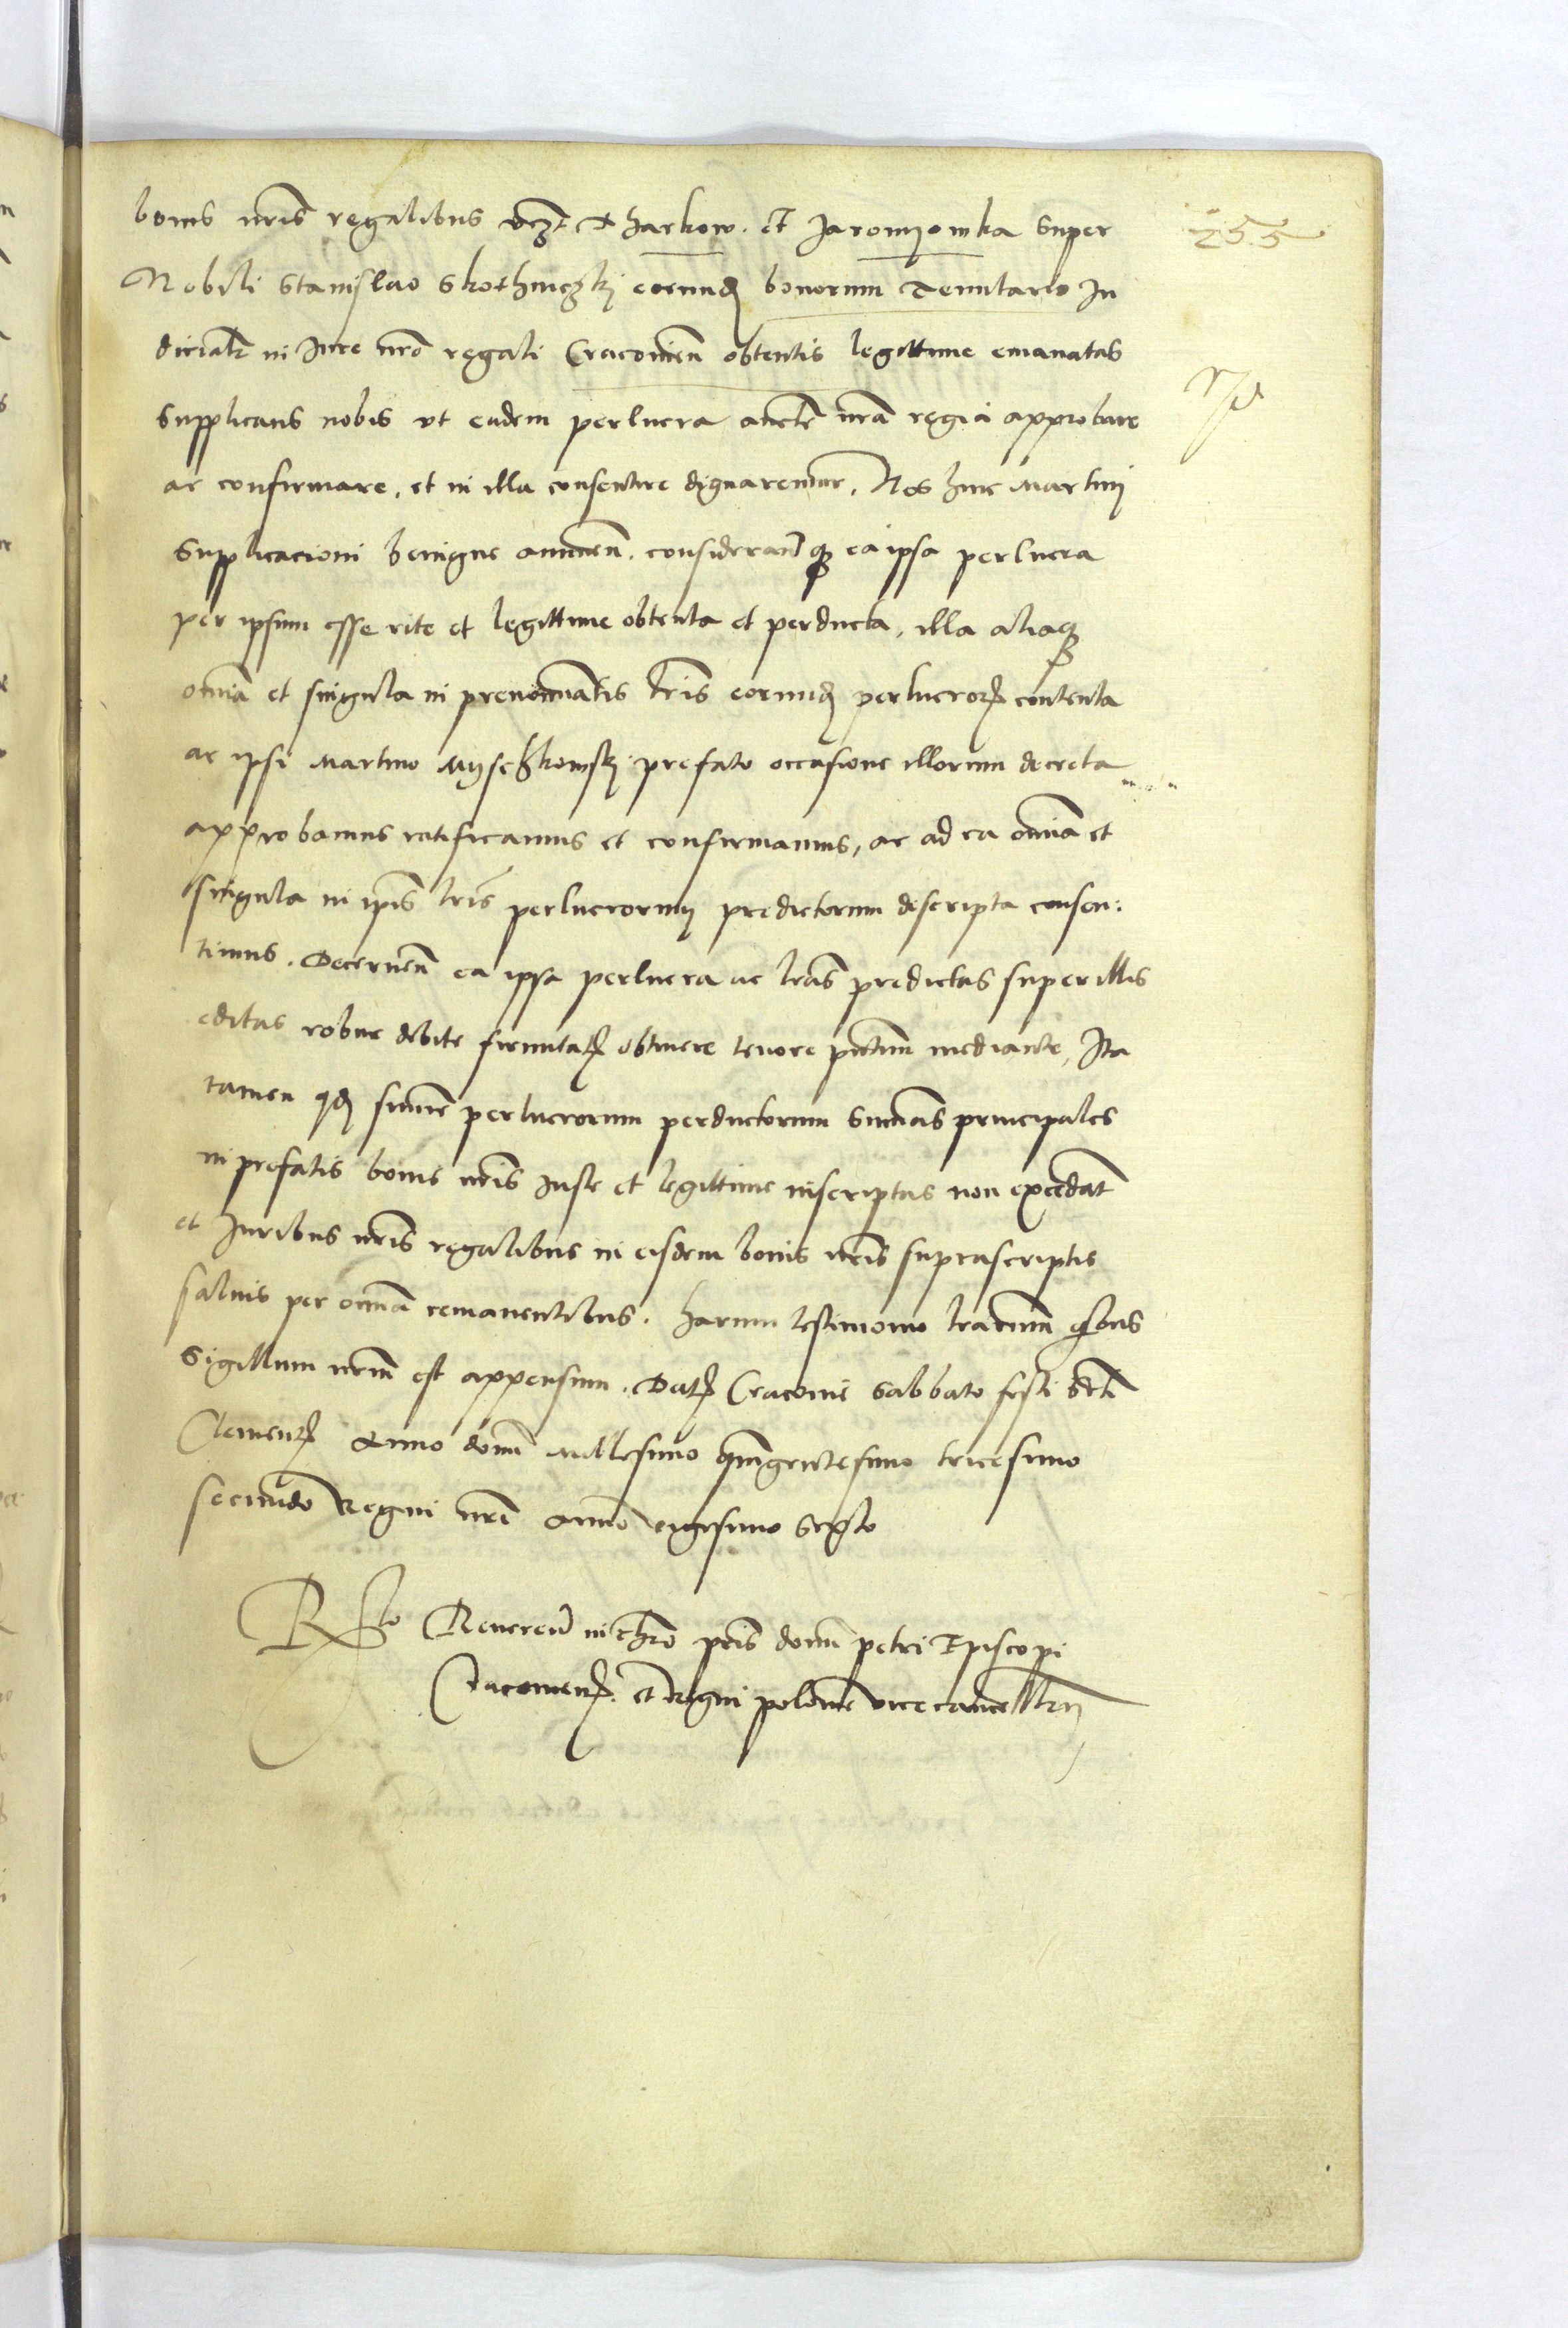 255
bonis nris regalibus vczt Tharkow. et Jaromyowka super
Nobili Stanislao Skothniczkj eorund bonorum Tenutario Ju
dicialr in Jure nro regali Cracovien obtentis legittime emanatas
supplicans nobis vt eadem perlucra aucte nra regia approbare
ac confirmare, et in illa consentire dignaremur. Nos huic Martini
supplicacioni benigne annuen. considerand q ea ipsa perlucra
per ipsum esse rite et legittime obtenta et perducta, illa aliaq
omia et singula in prenominatis lris eorund perlucror contenta
ac ipsi Martino Myschkowskj prefato occasione illorum decreta
approbamus ratificamus et confirmamus, ac ad ea omnia et
singula in ipis lris perlucrorum predictorum descripta consen:
timus. Decernen ea ipsa perlucra ac lras predictas super illis
editas robur debite firmitat obtinere tenore pntium mediante, Ita
tamen qd summe perlucrorum perductorum summas principales
in prefatis bonis nris juste et legittime inscriptas non excedat
et Juribus nris regalibus in eisdem bonis nris suprascriptis
salvis per omia remanentibus. Harum testimonio lrarum quibus
Sigillum nrum est appensum. Dat Cracovie sabbato festi scti
Clement Anno domi millesimo quingentesimo tricesimo
secundo Regni nri anno vigesimo sexto
Rlo Reverend in chro pris domi petri Episcopi
Cracovien et regni polonie vicecancellarij